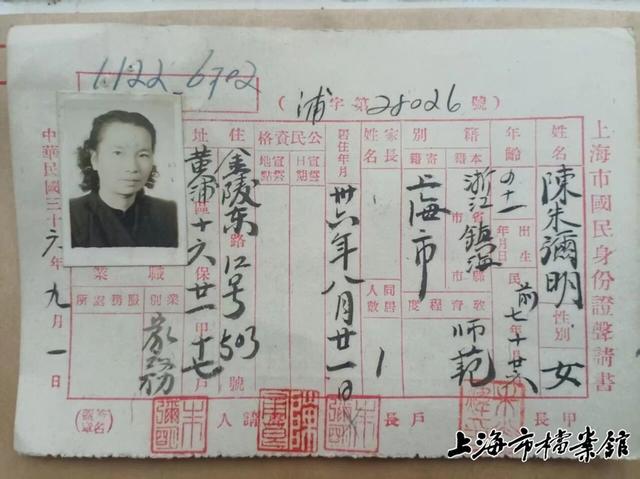 1122_6702
(浦字第28026號)
上海市國民身份證聲請書
姓名 陳朱彌明 性別 女
年齡 四十一 出生年月日 民前七年十月廿
籍別 本籍 浙江省 鎮海縣市
寄籍 上海市
教育程度 师范
家長姓名
同居人數 1
居住年月 卅六年八月廿一日
公民資格 宣誓日期
宣誓地點
住址 金陵东路 江号 503 號
黄浦區十六保廿一甲十七戶
職業 業別 家务
服務處所
中華民國三十六年九月一日
甲長
戶長
聲請人
簽名蓋章
朱彌明
上海市檔案館